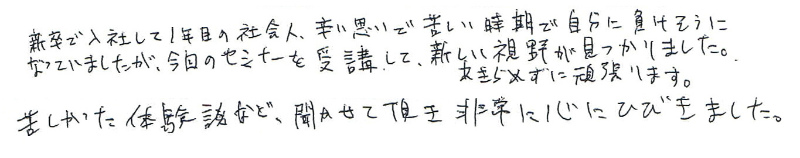 新卒で入社して1年目の社会人、辛い思いで苦しい時期で自分に負けそうに
なっていましたが、今回のセミナーを受講して、新しい視野が見つかりました。
あきらめずに頑張ります。
苦しかった体験談など、聞かせて頂き非常に心にひびきました。